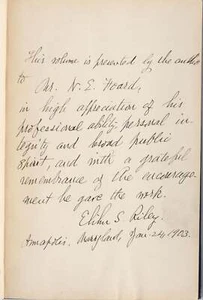 This volume is presented by the author
to Mr. N. E. Foard,
in high appreciation of his
professional ability, personal in-
tegrity and broad public
spirit, and with a grateful
remembrance of the encourage-
ment he gave the work.
Elihu S. Riley.
Annapolis, Maryland, Jan. 24, 1903.